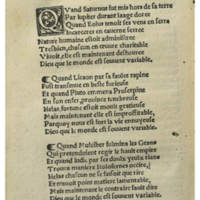 QVand Saturnus fut mis hors de sa terre
Par Jupiter durant lange doree
Quand Eolus tenoit ses vens en serre
Incarcerez en caverne serree
Nature humaine estoit administree
Tresbien, chascun en euvre charitable
Viuoit, elle est maintenant
Dieu que le monde est souvent variable.
Quand Licaon par sa faulse rapine
Fust transmue en beste furieuse
Et quand Pluto emmena Proserpine
En son enfer, prouince tenebreuse
Helas fortune estoit moult gratieuse
Mais maintenant elle est improffitable,
Parquoy nous est la vie ennuyeuse
Dieu que le monde est souvent variable.
Quand Mulciber les Cieux
Qui pretendoient regir le hault empire
Et quand iadis, par sordure vault
Trouva maniere
Helas chascun ne se faisoit que rire
Et tout point maniere lamentable,
Mais maintenant le contraire fault dire
Dieu que le monde est souvent variable.